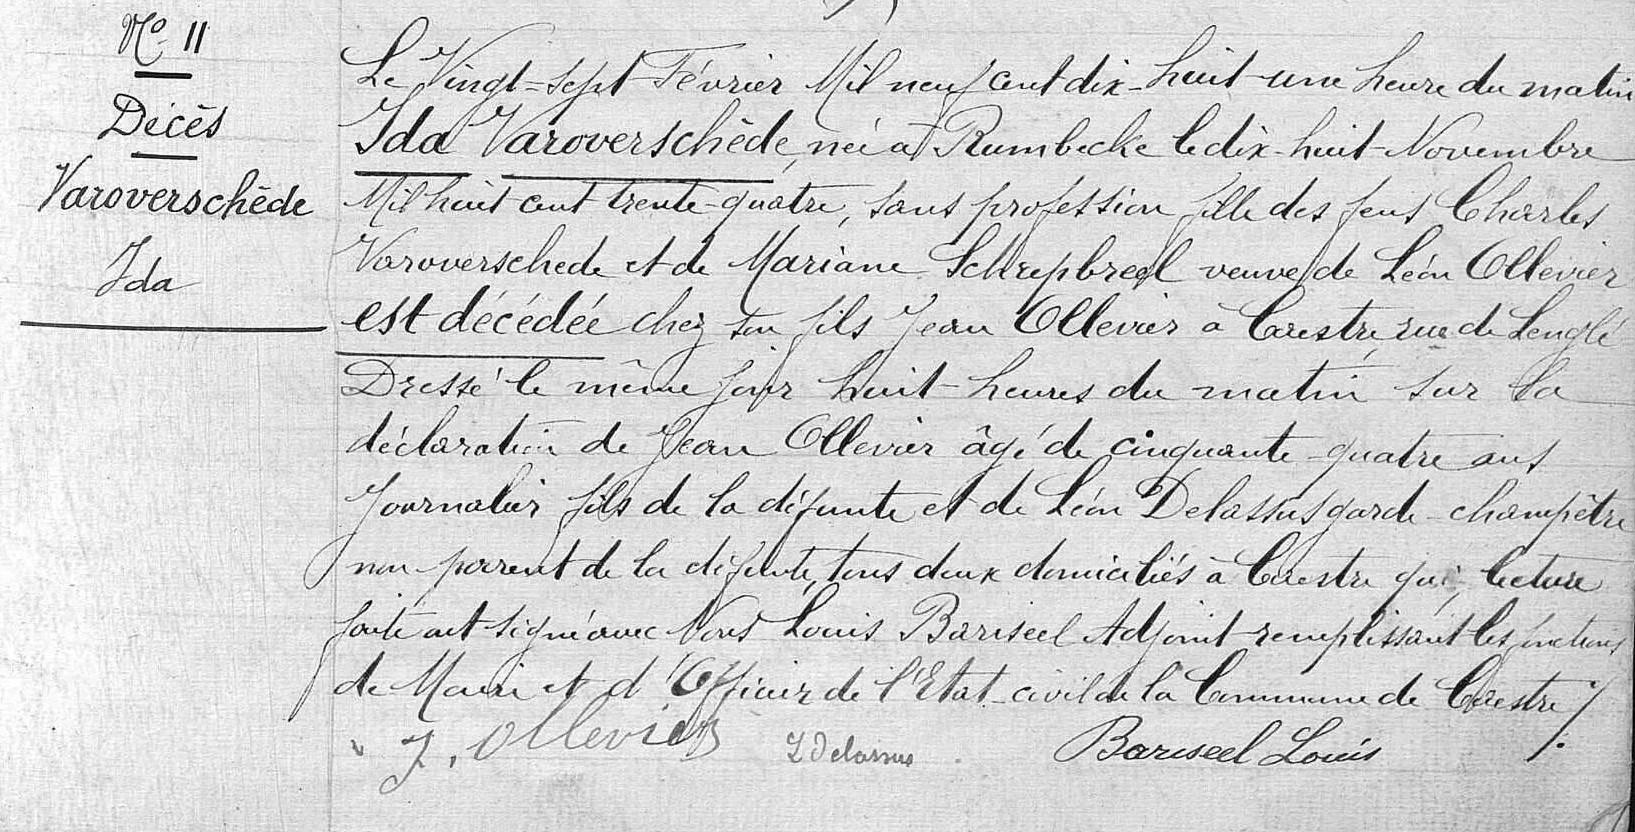 No 11
Décès
Varoverschède
Ida
Le Vingt-sept Février Mil neuf cent dix-huit une heure du matin
Ida Varoverschède, née à Rumbecke le dix-huit Novembre
Mil huit cent trente-quatre, sans profession fille des feus Charles
Varoverschede et de Mariane Schrepbreel veuve de Léon Ollevier
est décédée chez son fils Jean Ollevier à Caestre, rue de Lenglé
Dressé le même jour huit heures du matin sur la
déclaration de Jean Ollevier âgé de cinquante-quatre ans
Journalier fils de la défunte et de Léon Delassus garde-champêtre
non parent de la défunte, tous deux domiciliés à Caestre qui, lecture
faite ont signé avec Nous Louis Bariseel Adjoint remplissant les fonctions
de Maire et d'Officier de l'Etat-civil de la Commune de Caestre ./.
J. Ollevier
L Delassus
Bariseel Louis